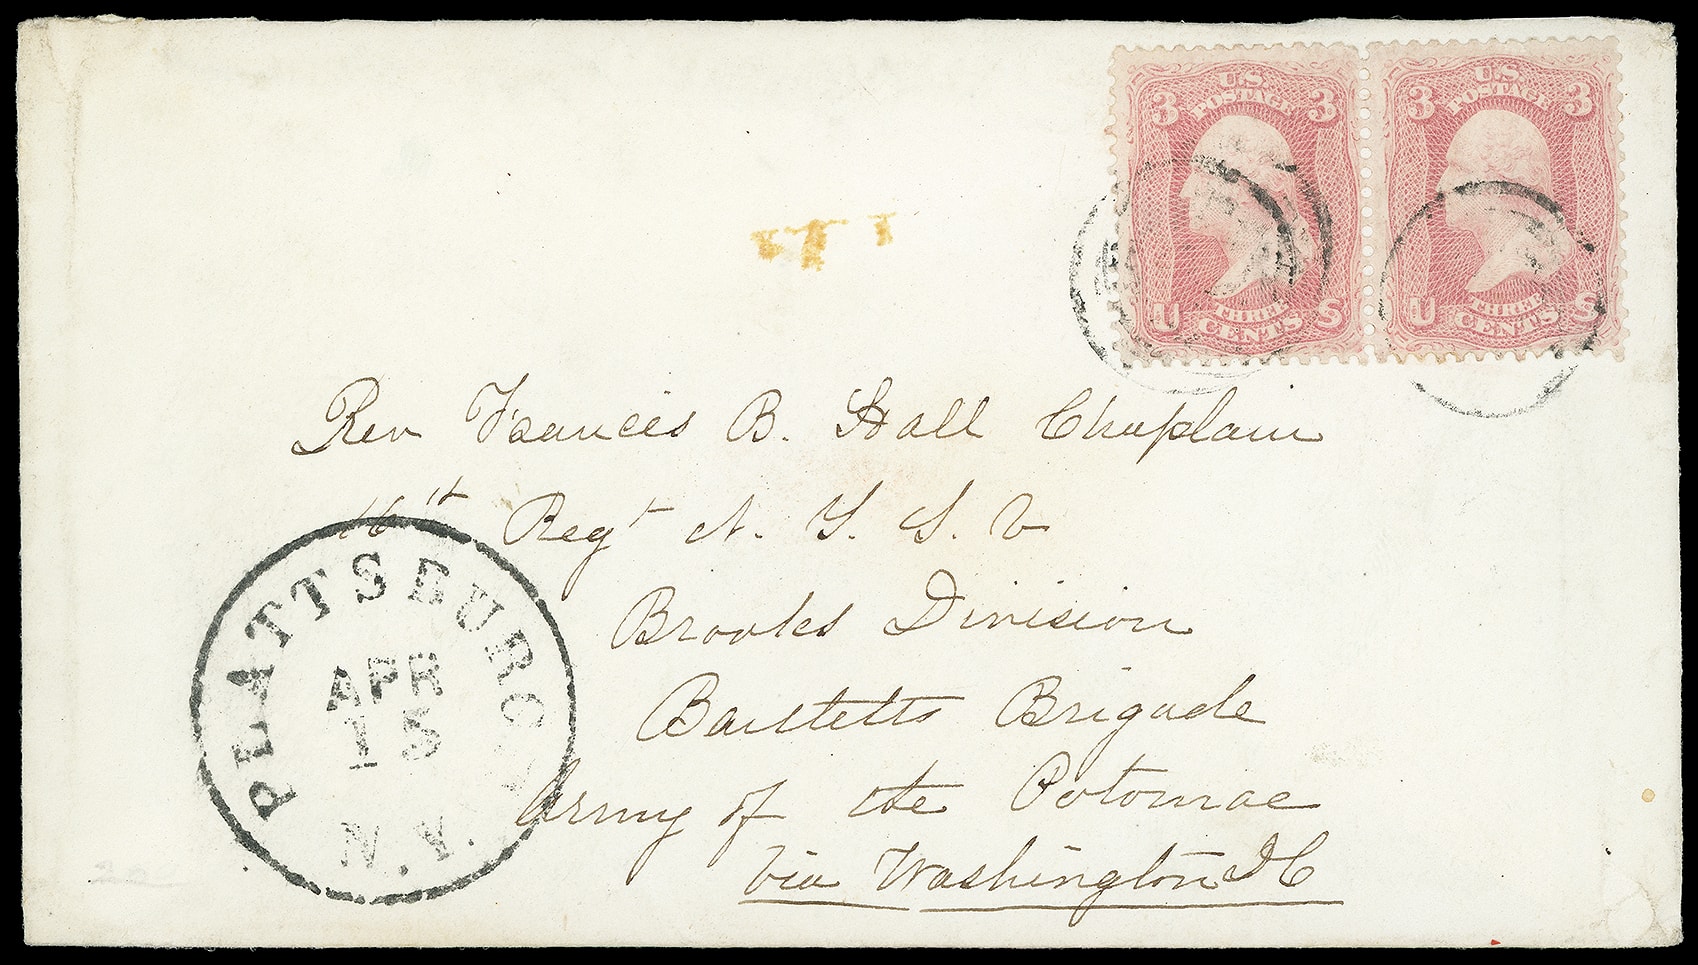 U.S. POSTAGE
3 3
THREE CENTS
U S
U.S. POSTAGE
3 3
THREE CENTS
U S
Rev Francis B. Hall Chaplain
16th Regt N. Y. S. V
Brooks Division
Bartletts Brigade
Army of the Potomac
Via Washington DC
PLATTSBURGH
APR
15
N.Y.